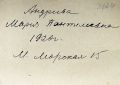 Андреева
Мария Пантелеевна
1926 г
М. Морская 15